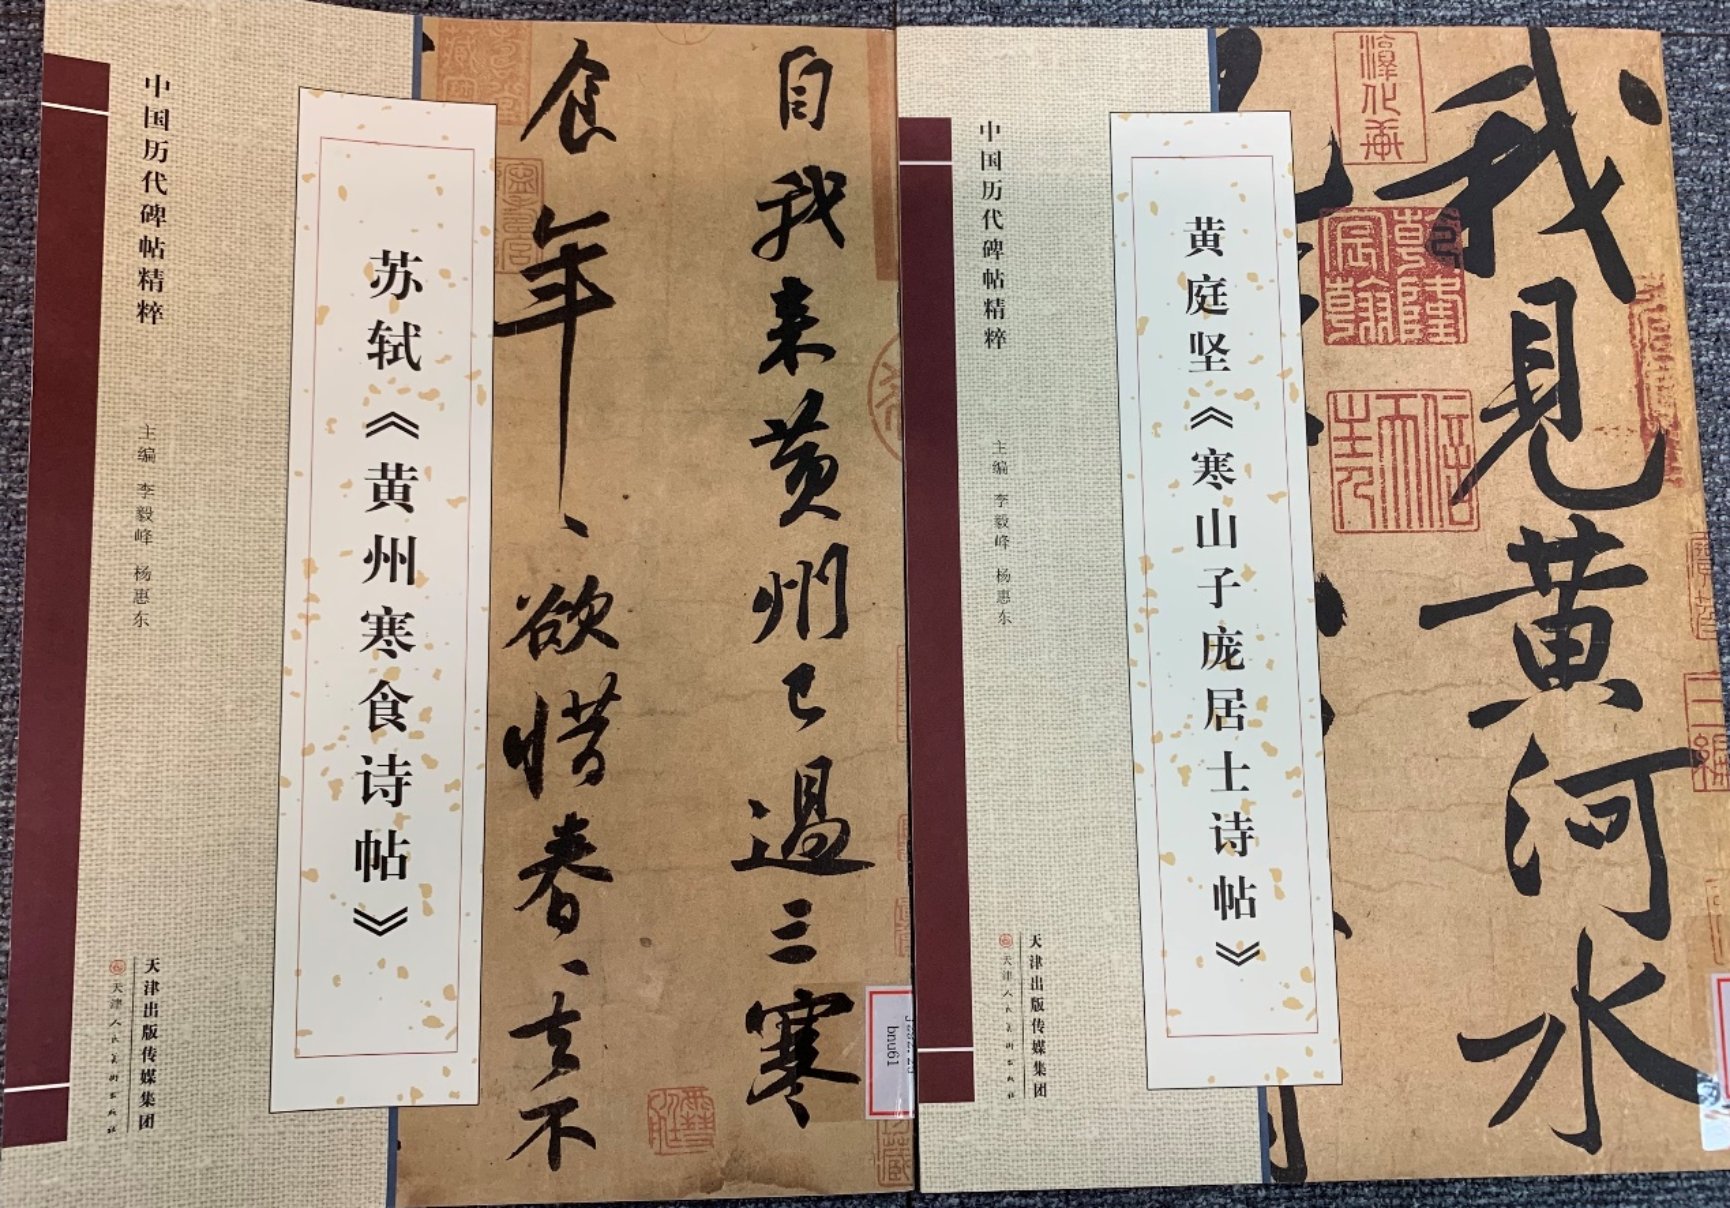 中国历代碑帖精粹
主编 李毅峰 杨惠东
天津出版传媒集团
天津人民美术出版社
苏轼《黄州寒食诗帖》
自我来黄州已過三寒
食年、欲惜春、去不
bnu61
中国历代碑帖精粹
主编 李毅峰 杨惠东
天津出版传媒集团
天津人民美术出版社
黄庭坚《寒山子庞居士诗帖》
我見黄河水
乾隆宸翰